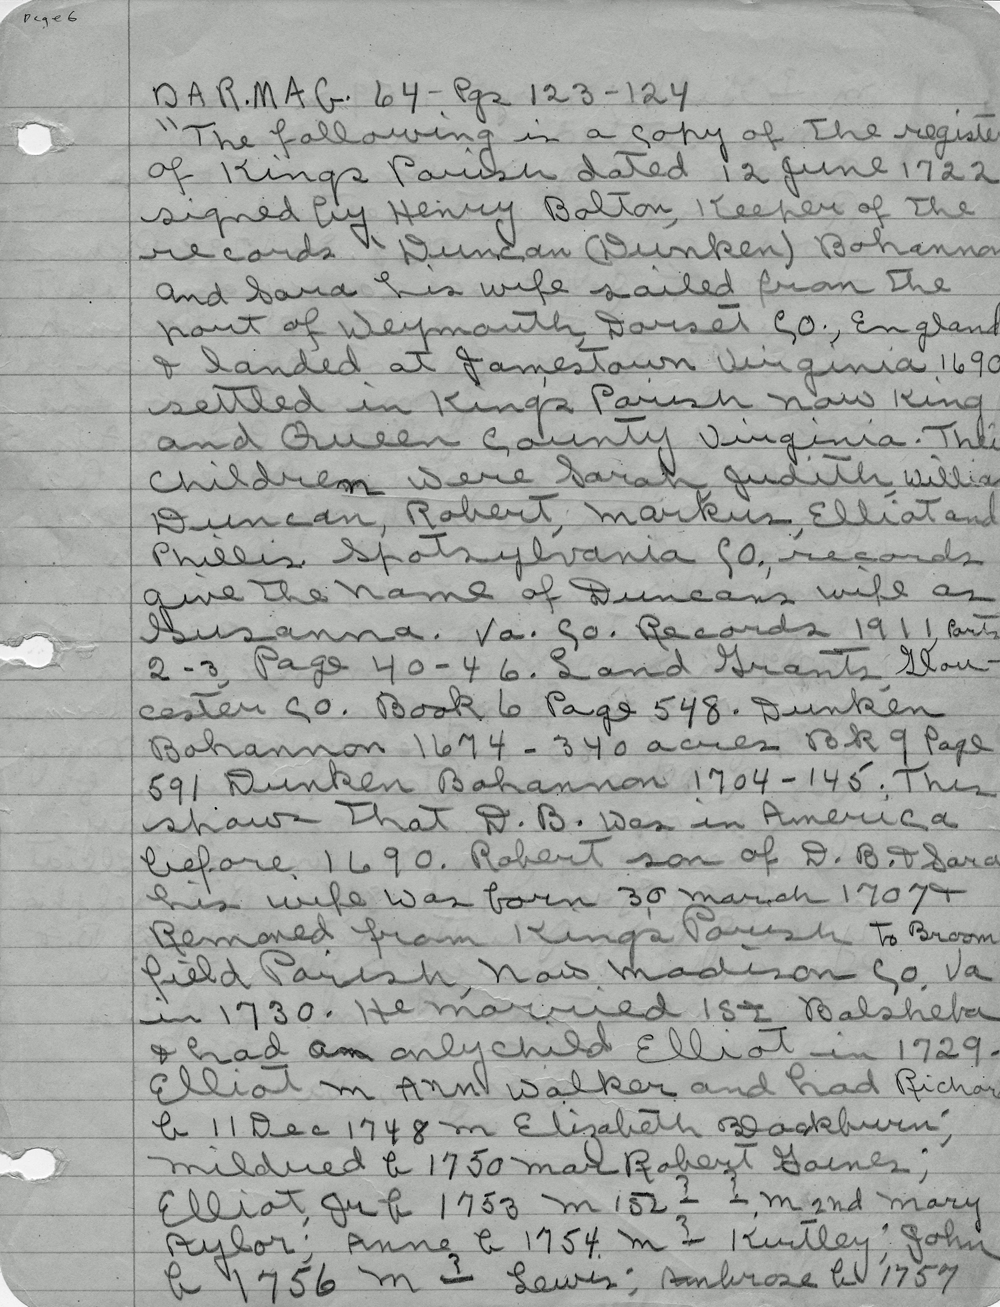 Page 6
DAR.MAG. 64 - Pgs 123-124
"The following is a copy of the registe
of Kings Parish dated 12 June 1722
signed by Henry Bolton, Keeper of the
records "Duncan (Dunken) Bohannon
and Sara his wife sailed from the
port of Weymouth, Dorset Co., England
& landed at Jamestown Virginia 1690
settled in Kings Parish now King
and Queen County Virginia. Thei
children were Sarah, Judith, Willia
Duncan, Robert, Markus, Elliot and
Phillis. Spotsylvania Co., records
give the name of Duncans wife as
Susanna. Va. Co. Records 1911, Parts
2-3, Page 40-46. Land Grants, Glou-
cester Co. Book 6 Page 548. Dunken
Bohannon 1674 - 340 acres Bk 9 Page
591 Dunken Bohannon 1704-145. This
shows that D. B. was in America
before 1690. Robert son of D. B. & Sara
his wife was born 30 March 1707 &
Removed from Kings Parish to Broom
field Parish, now Madison Co Va
in 1730. He married 1st Balsheba
& had an only child Elliot in 1729-
Elliot m Ann Walker and had Richar
b 11 Dec 1748 m Elizabeth Blackburn;
Mildred b 1750 mar Robert Gaines;
Elliot, Jr b 1753 m 1st ? ?, m 2nd Mary
Aylor; Anne b 1754 m ? Kirtley; John
b 1756 m ? Lewis; Ambrose b 1757